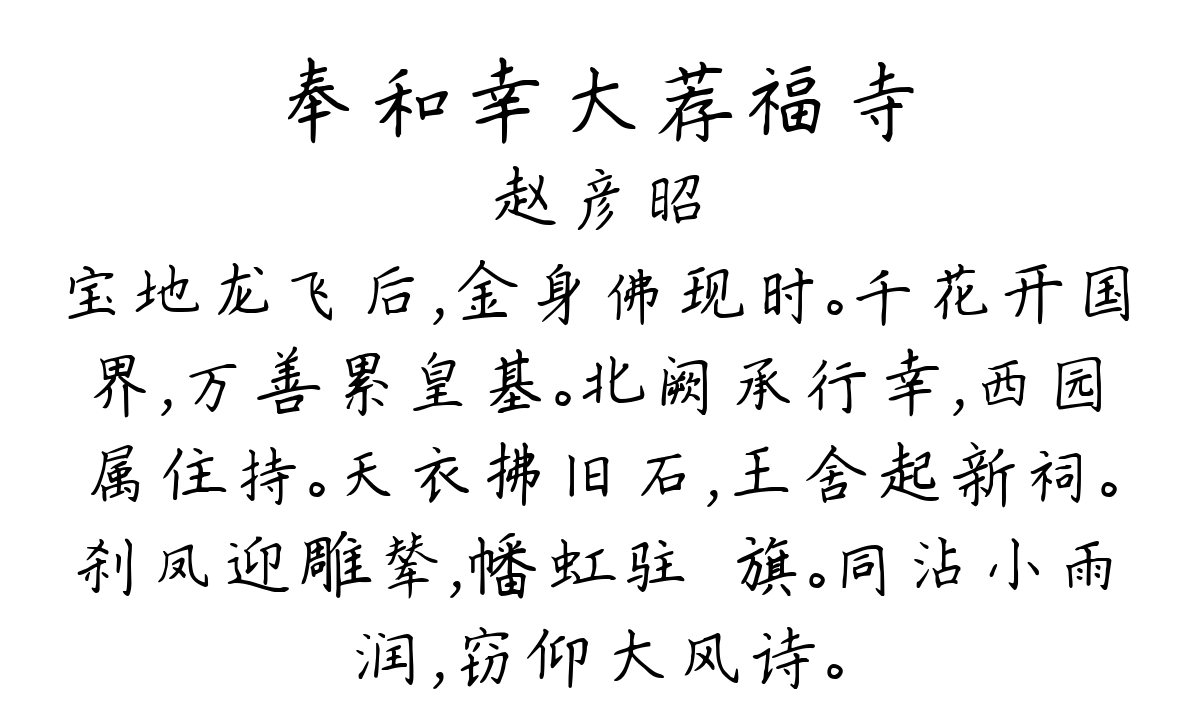 奉和幸大荐福寺
赵彦昭
宝地龙飞后,金身佛现时。千花开国
界,万善累皇基。北阙承行幸,西园
属住持。天衣拂旧石,王舍起新祠。
刹凤迎雕辇,幡虹驻 旗。同沾小雨
润,窃仰大风诗。